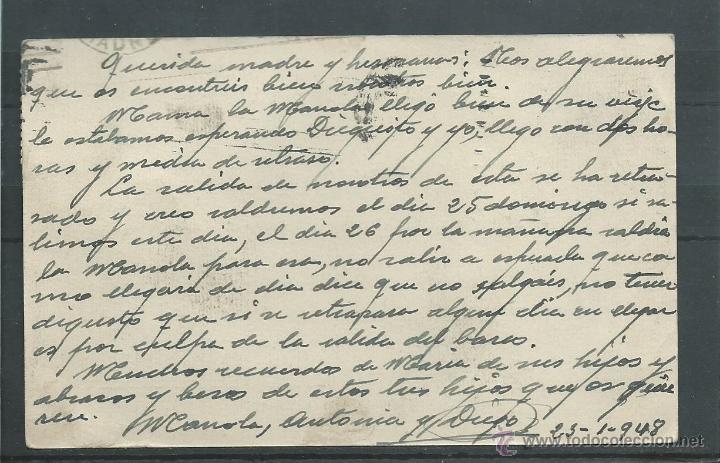 MADR
Querida madre y hermanas: Nos alegraremos
que os encontreis bien nosotros bien.
Mama la Manola llegó bien de su viaje
la estabamos esperando Dieguito y yo, llego con dos ho-
ras y media de retraso.
La salida de nosotros de esta se ha retra-
sado y creo saldremos el dia 25 domingo si sa-
limos este dia, el dia 26 por la mañana saldra
la Manola para esa, no salir a esperarla que co-
mo llegara de dia dice que no salgais, no tener
digusto que si se retrasara algun dia en llegar
es por culpa de la salida del barco.
Muchos recuerdos de Maria de sus hijos y
abrazos y besos de estos tus hijos que os quie-
ren.
Manola, Antonia y Diego
23-1-948
todocoleccion.net